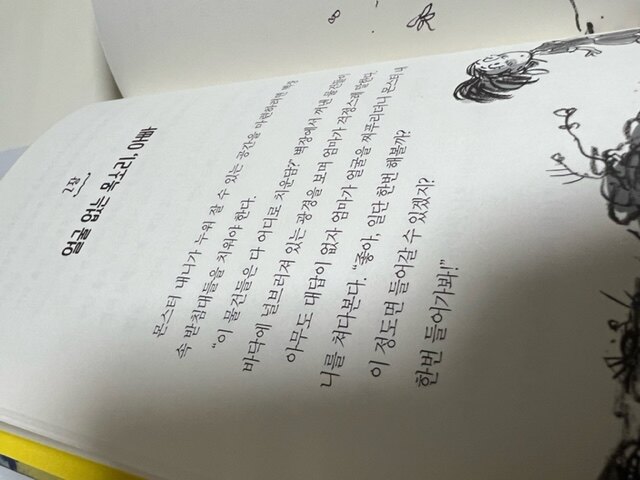 2장
얼굴 없는 목소리, 아빠
몬스터 내니가 누워 잘 수 있는 공간을 마련하려면 벽장
속 받침대들을 치워야 한다.
“이 물건들은 다 어디로 치운담?” 벽장에서 꺼낸 물건들이
바닥에 널브러져 있는 광경을 보며 엄마가 걱정스레 말한다.
아무도 대답이 없자 엄마가 얼굴을 찌푸리더니 몬스터 내
니를 쳐다본다. “좋아, 일단 한번 해볼까?
이 정도면 들어갈 수 있겠지?
한번 들어가봐!”